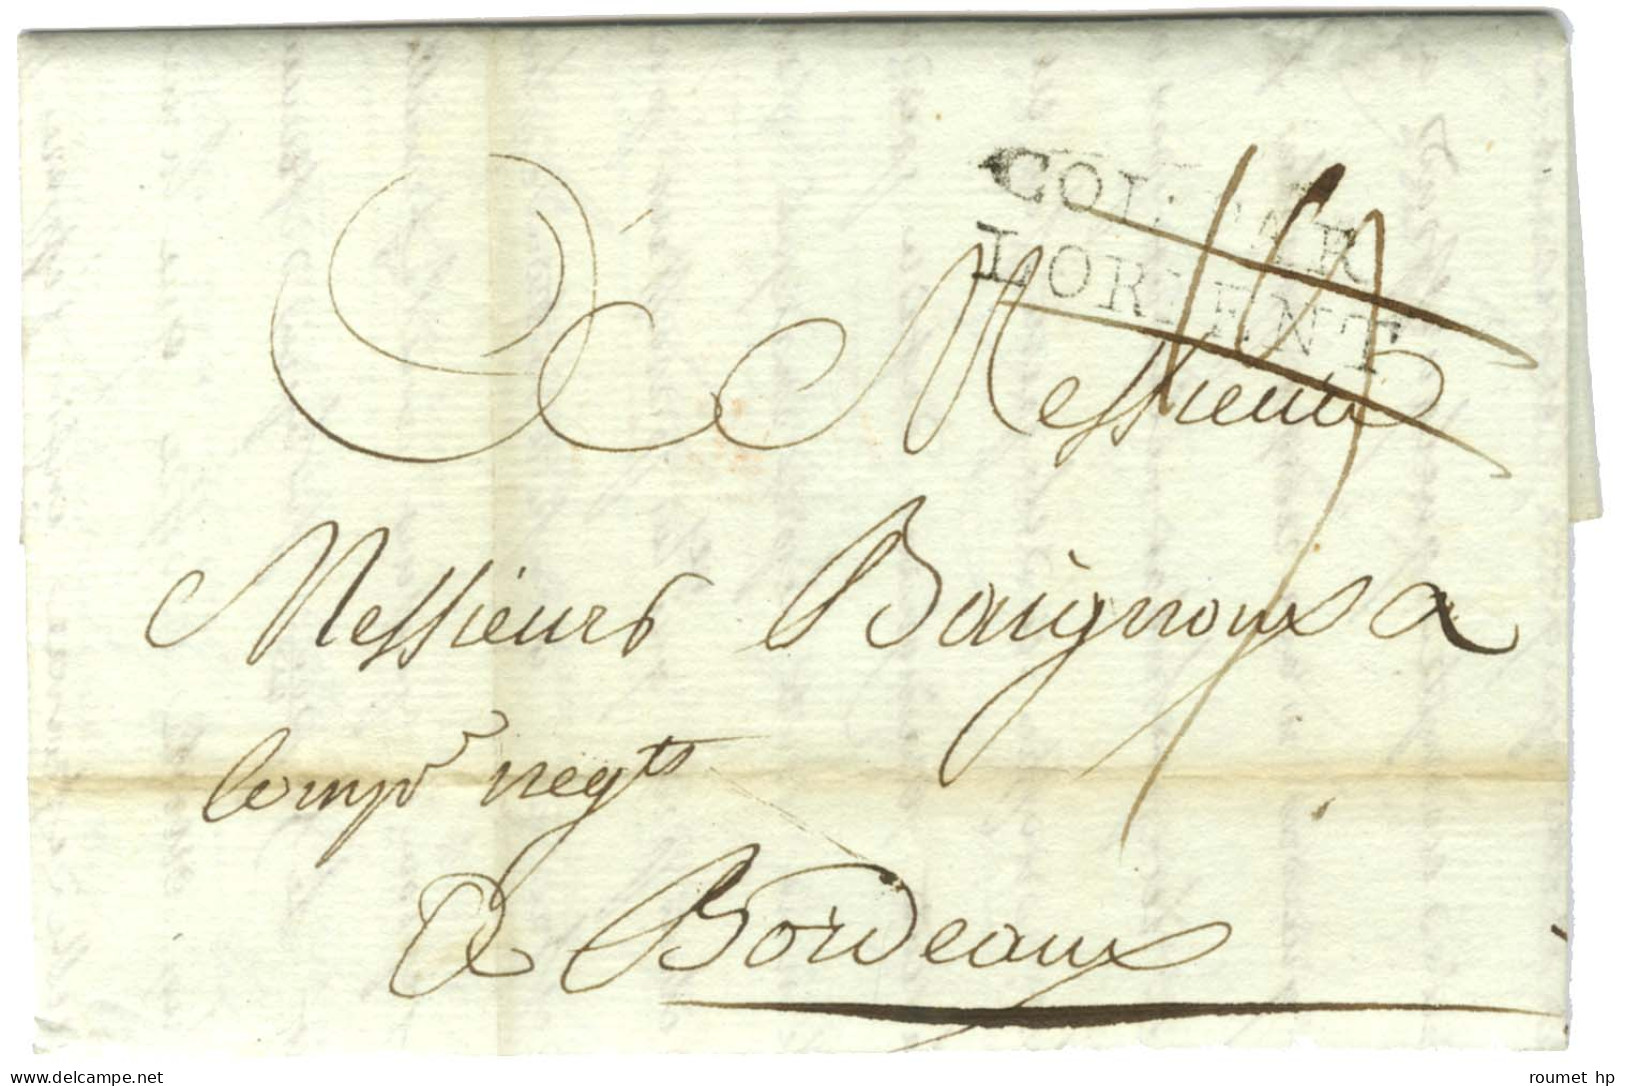 COL. PAR
LORIENT
A Messieurs
Messieurs Baignoux &
Comp.r neg.ts
A Bordeaux
delcampe.net
roumet hp